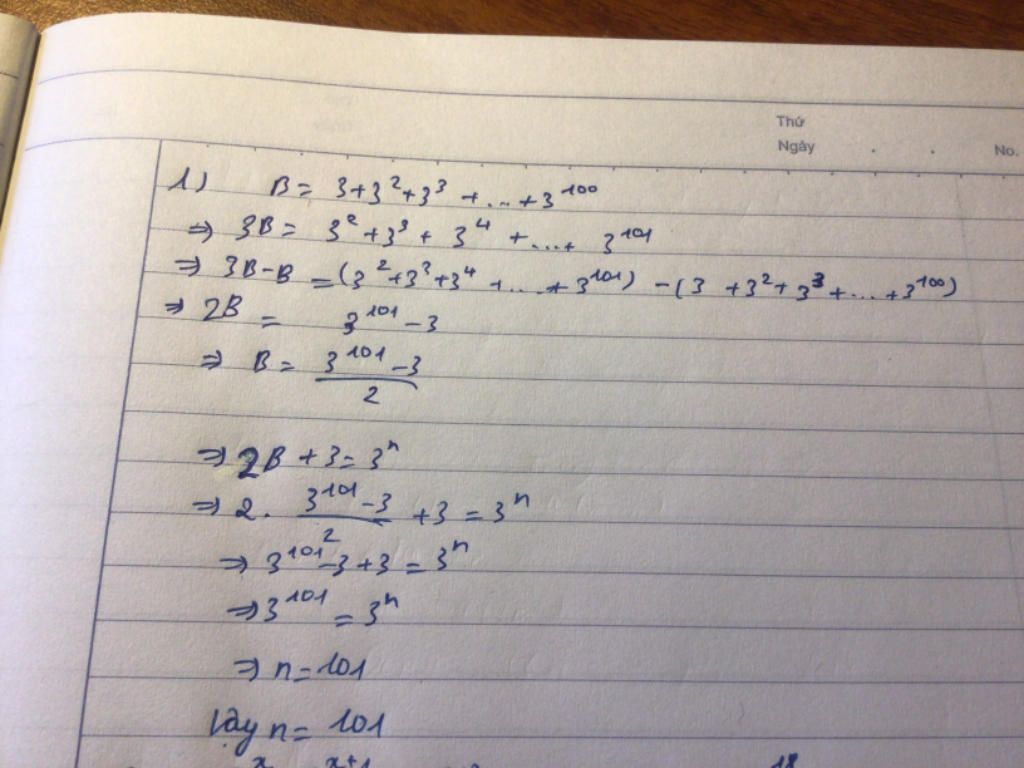 Thứ
Ngày . . No.
1) B = 3+3²+3³ +...+3¹⁰⁰
⇒ 3B = 3²+3³ + 3⁴ +...+ 3¹⁰¹
⇒ 3B-B = (3²+3³+3⁴ +...+ 3¹⁰¹) - (3 +3²+3³+...+3¹⁰⁰)
⇒ 2B = 3¹⁰¹ - 3
⇒ B = (3¹⁰¹ - 3)/2
⇒ 2B + 3 = 3ⁿ
⇒ 2 . (3¹⁰¹ - 3)/2 + 3 = 3ⁿ
⇒ 3¹⁰¹ - 3 + 3 = 3ⁿ
⇒ 3¹⁰¹ = 3ⁿ
⇒ n = 101
Vậy n = 101